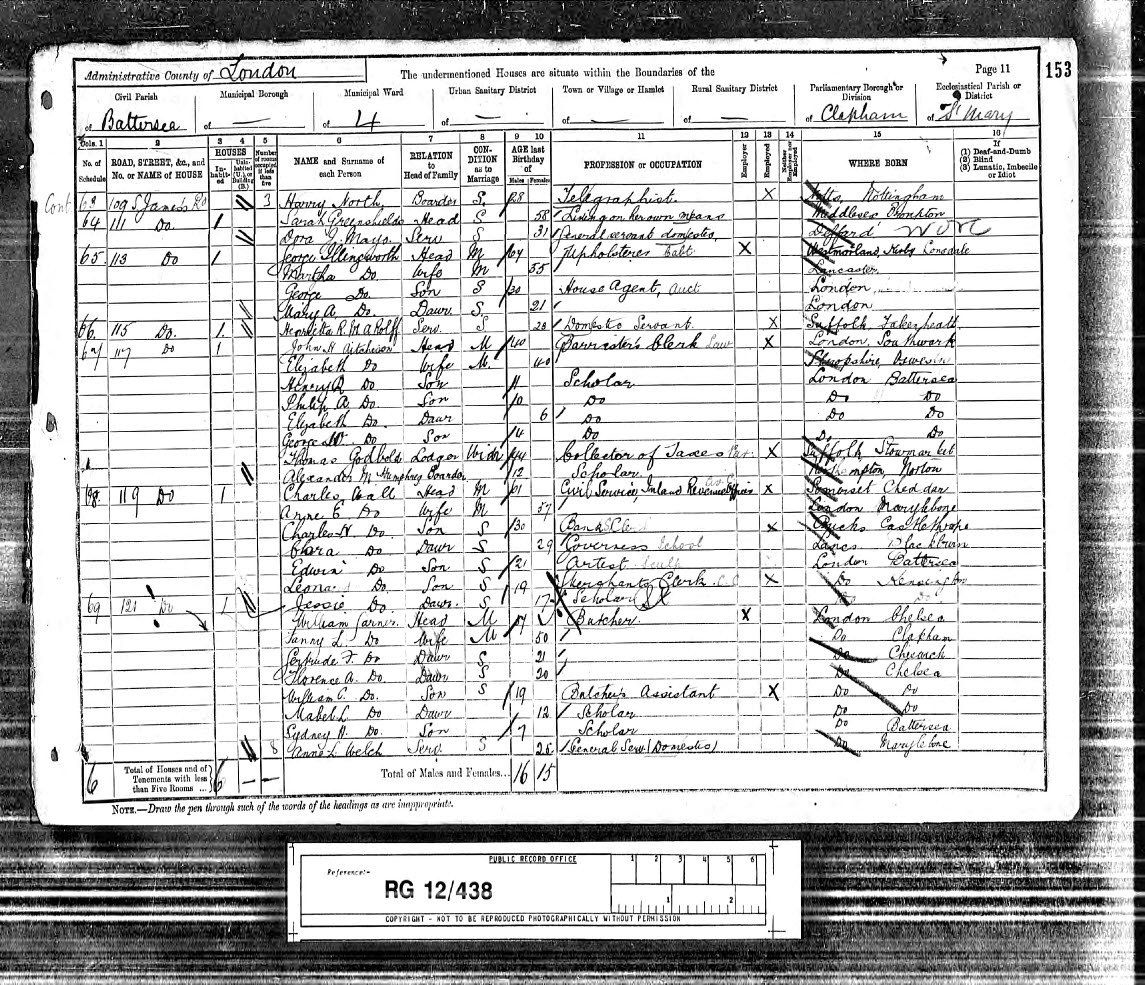 Administrative County of London
The undermentioned Houses are situate within the Boundaries of the
Page 11
153
Civil Parish of Battersea
Municipal Borough of —
Municipal Ward of 4
Urban Sanitary District of —
Town or Village or Hamlet of —
Rural Sanitary District of —
Parliamentary Borough or Division of Clapham
Ecclesiastical Parish or District of St Mary
Cols. 1 2 3 4 5 6 7 8 9 10 11 12 13 14 15 16
No. of Schedule
ROAD, STREET, &c., and No. or NAME of HOUSE
HOUSES
Inhabited
Uninhabited (U.), or Building (B.)
Number of rooms occupied if less than five
NAME and Surname of each Person
RELATION to Head of Family
CONDITION as to Marriage
AGE last Birthday of
Males Females
PROFESSION or OCCUPATION
Employer
Employed
Neither Employer nor Employed
WHERE BORN
If
(1) Deaf-and-Dumb
(2) Blind
(3) Lunatic, Imbecile or Idiot
Cont 63 109 S James Rd 3 Harry North Boarder S 28 Telegraphist X Notts, Nottingham
64 111 Do 1 Sarah Greenshields Head S 58 Living on her own means Middlesex Brompton
Dora G. Mayo Serv S 31 General servant domestic
65 113 Do 1 George Illingworth Head M 64 Upholsterer X Westmorland, Kirby Lonsdale
Martha Do. Wife M 55 Lancaster
George Do. Son S 30 House Agent, Auct London
Mary A. Do. Daur S 21 London
66 115 Do. 1 Serv. S 28 Domestic Servant X Suffolk Lakenheath
67 117 Do 1 John H Aitchison Head M 40 Barrister's Clerk Law X London, Southwark
Elizabeth Do Wife M. 40 Shropshire, Oswestry
Henry Do Son 11 Scholar London Battersea
Philip A. Do. Son 10 Do Do Do
Elizabeth Do. Daur 6 Do Do Do
George W. Do Son 4 Do Do Do
Thomas Godbold Lodger Widr 44 Collector of Taxes X Suffolk, Stowmarket
Alexander M Humphrey Boarder 12 Scholar Norton
68 119 Do 1 Charles Wall Head M 61 Civil Service, Inland Revenue X Somerset Cheddar
Anne E Do Wife M 57 London Marylebone
Charles H. Do Son S 30 Bank Clerk X Bucks Castlethorpe
Clara Do Daur S 29 Governess School Lancs Blackburn
Edwin Do Son S 21 Artist Sculp London Battersea
Leonard Do Son S 19 Merchants Clerk X Do Kensington
Jessie Do. Daur. S 17 Scholar Do Do
69 121 Do 1 William Garner Head M 47 Butcher X London Chelsea
Fanny L. Do Wife M 50 Do Clapham
Gertrude F. Do Daur S 21 Do Chiswick
Florence A. Do Daur S 20 Do Chelsea
William C. Do. Son S 19 Butcher's Assistant X Do Do
Mabel L. Do Daur 12 Scholar Do Do
Sydney Do Son 7 Scholar Do Battersea
Anne L Welch Serv. S 26 General Serv (Domestic) Do Marylebone
6 Total of Houses and of Tenements with less than Five Rooms ... 6 — Total of Males and Females... 16 15
NOTE.—Draw the pen through such of the words of the headings as are inappropriate.
PUBLIC RECORD OFFICE
1 2 3 4 5 6
Reference:-
RG 12/438
1 2
COPYRIGHT - NOT TO BE REPRODUCED PHOTOGRAPHICALLY WITHOUT PERMISSION